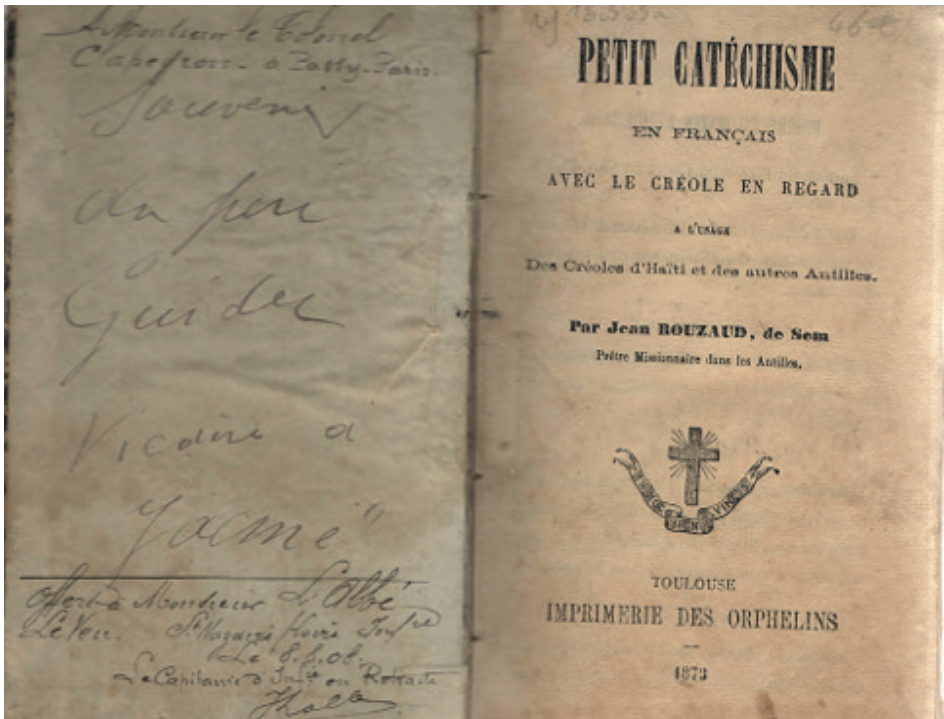 A Monsieur le Colonel
Capeyron - à Passy-Paris.
Souvenir
du père
Guidec
Vicaire à
Jacmel
offert à Monsieur L'Abbé
Le 8.8.08.
Le Capitaine d'Infie en Retraite
46 €
PETIT CATÉCHISME
EN FRANÇAIS
AVEC LE CRÉOLE EN REGARD
A L'USAGE
Des Créoles d'Haïti et des autres Antilles.
Par Jean ROUZAUD, de Sem
Prêtre Missionnaire dans les Antilles.
TOULOUSE
IMPRIMERIE DES ORPHELINS
1873